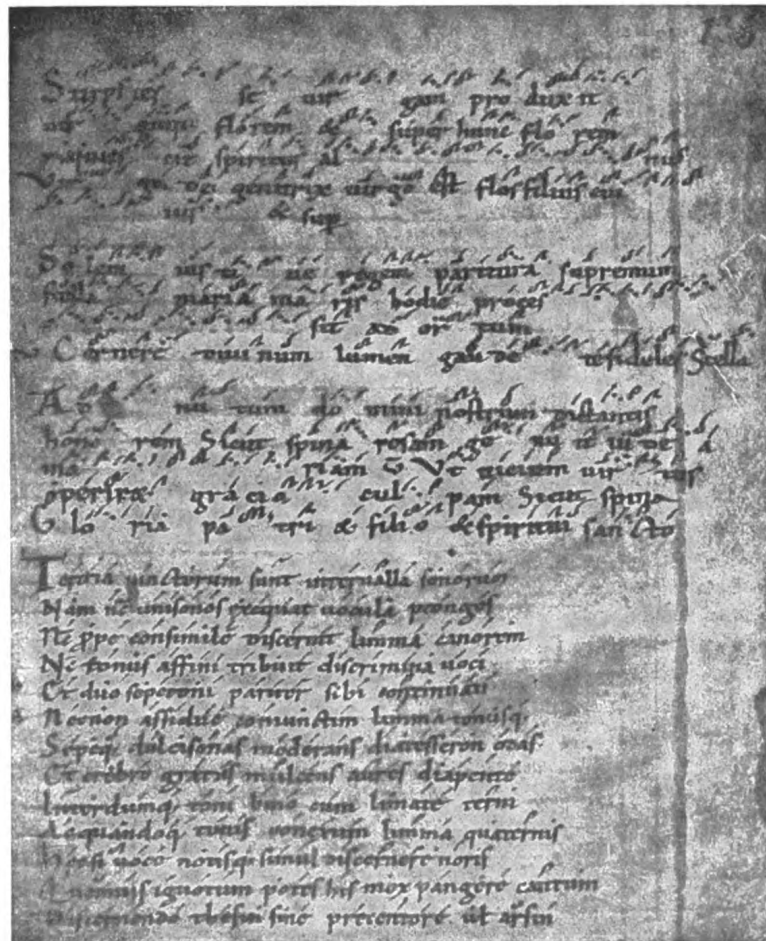 Stirps ies se uir gam pro dux it
uir gaq; florem & super hunc flo rem
requies cit spiritus al mus
V Vir go dei genitrix uirgo est flos filius eius
ius & sup
So lem ius ti ti e regem paritura supremum
stella maria ma ris hodie proces
sit ad or tum
V Cernere diui num lumen gau de te fideles Stella
Ad nu tum do mini nostrum ditantis
hono rem Sicut spina rosam ge nu it iu de a
ma riam V Vt uicium uir tus
operiret gracia cul pam Sicut spina
G lo ria pa tri & filio & spiritui san cto
Ter tria iunctorum sunt interualla sonorum
Nam nunc unisonos
Ne ppe consimile discernit limma canorem
Ne tonus affini tribuit discrimina uoci
Et duo sepe toni pariter sibi continuati
Necnon assidue coniunctim limma tonusq;
Sepeq; dulcisonas moderans diatesseron odas
Et crebro gratis mulcens aures diapente
Interdumq; toni bino cum limate terni
Ac quandoq; tonis limma quaternis
uoce notisq; simul discernere noris
ignotum potes his mox pangere cantum
Discernendo thesin sine precentore uel arsin